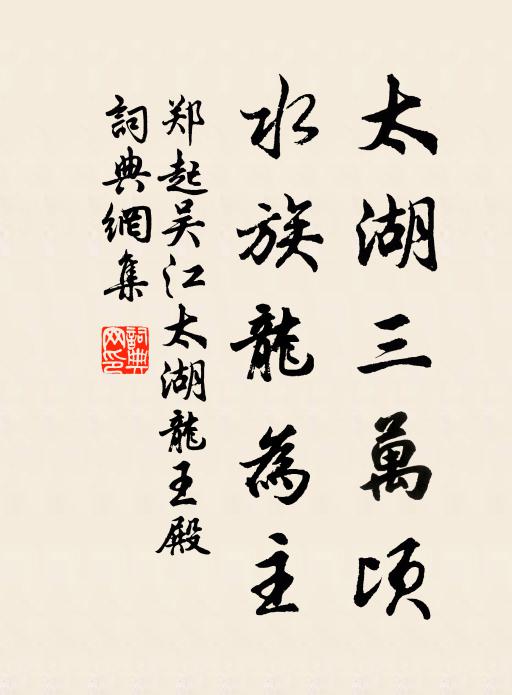 太湖三萬頃
水族龍為主
郑起吴江太湖龍王殿
詞典網集
詞典網印